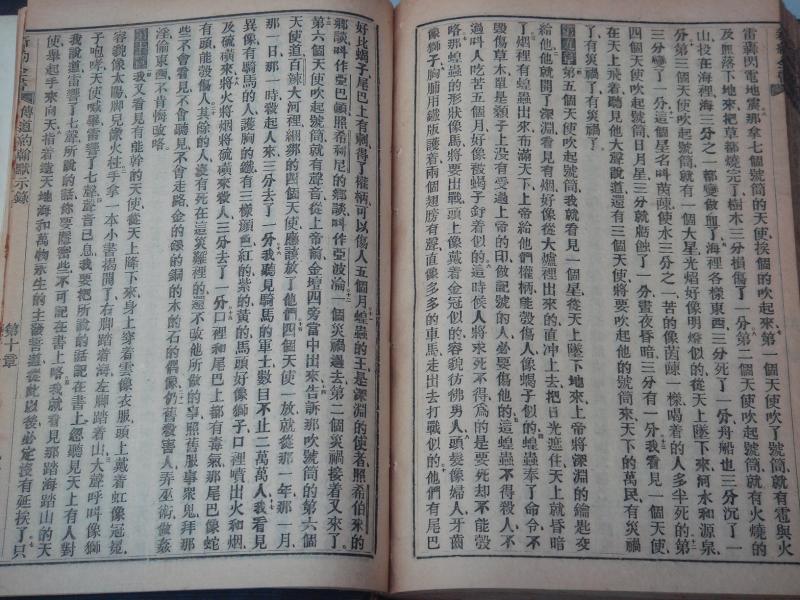 雷轟閃電地震那拿七個號筒的天使挨個的吹起來第一個天使吹了號筒就有雹與火
及血落下地來把草都燒完了樹木三分損傷了一分第二個天使吹起號筒就有火燒的
山投在海裡海三分之一都變做血了海裡各樣東西三分死了一分舟船也三分沉了一
分第三個天使吹起號筒就有一個大星光焰好像明燈似的從天上墜下來河水和源泉
三分變了一分這個星名叫茵蔯使水三分之一苦的像茵蔯一樣喝着的人多半死的第
四個天使吹起號筒日月星三分就虧蝕了一分晝夜昏暗三分有一分我看見一個天使
在天上飛着聽見他大聲說道還有三個天使將要吹起他的號筒來天下的萬民有災禍
了有災禍了有災禍了
第九章第五個天使吹起號筒我就看見一個星從天上墜下地來上帝將深淵的鑰匙交
給他他就開了深淵看見有烟好像從大爐裡出來的直冲上去把日光遮住天上就昏暗
了烟裡有蝗蟲出來布滿天下上帝給他們權柄能彀傷人像蝎子似的蝗蟲奉了命令不
毀傷草木單是額子上沒有受過上帝的印做記號的人必要傷他的這蝗蟲不得殺人不
過叫人吃苦五個月好像被蝎子螫着似的這時候人將求死不得爲的是要死却不能彀
略那蝗蟲的形狀像馬將要出戰頭上像戴着金冠似的容貌彷彿男人頭髮像婦人牙齒
像獅子胸脯用鐵版護着兩個翅膀有聲直像多多的車馬走出去打戰似的他們有尾巴
好比蝎子尾巴上有刺得了權柄可以傷人五個月蝗蟲的王是深淵的使者照希伯來的
鄉談叫作亞巴頓照希利尼的鄉談叫作亞波淪一個災禍過去第二個災禍接着又來了
第六個天使吹起號筒就有聲音從上帝前金壇四旁當中出來告訴那吹號筒的第六個
天使道百辣大河裡綑綁的四個天使應該放了他們四個天使一放就從那一年那一月
那一日那一時殺起人來三分去了一分我聽見騎馬的軍士數目不止二萬萬人我看見
異像有騎馬的人護胸的鐵有三樣顏色紅的紫的黃的馬頭好像獅子口裡噴出火和烟
及硫磺來將火將烟將硫磺來殺人三分去了一分口裡和尾巴上都有毒氣那尾巴像蛇
有頭能彀傷人其餘的人沒有死在這災難裡的還不改他所做的事照舊服事衆鬼拜那
些不會看見不會聽見不會走路金的銀的銅的木的石的偶像仍舊殺害人弄巫術做姦
淫偷東西不肯悔改略
第十章我又看見有能幹的天使從天上降下來身上穿着雲像衣服頭上戴着虹像冠冕
容貌像太陽脚兒像火柱手拿一本小書揭開了右脚踏着海左脚踏着山大聲呼叫像獅
子咆哮天使喊畢雷響了七聲聲音已息我要把所說的話記在書上忽聽見天上有人對
我說道雷響了七聲所說的話你要隱密些不可記在書上略我就看見那踏海踏山的天
使舉起手來向天指着造天地海和萬物永生的主發誓道從此以後必定沒有延挨了只
新約全書
傳道約翰默示錄
第十章